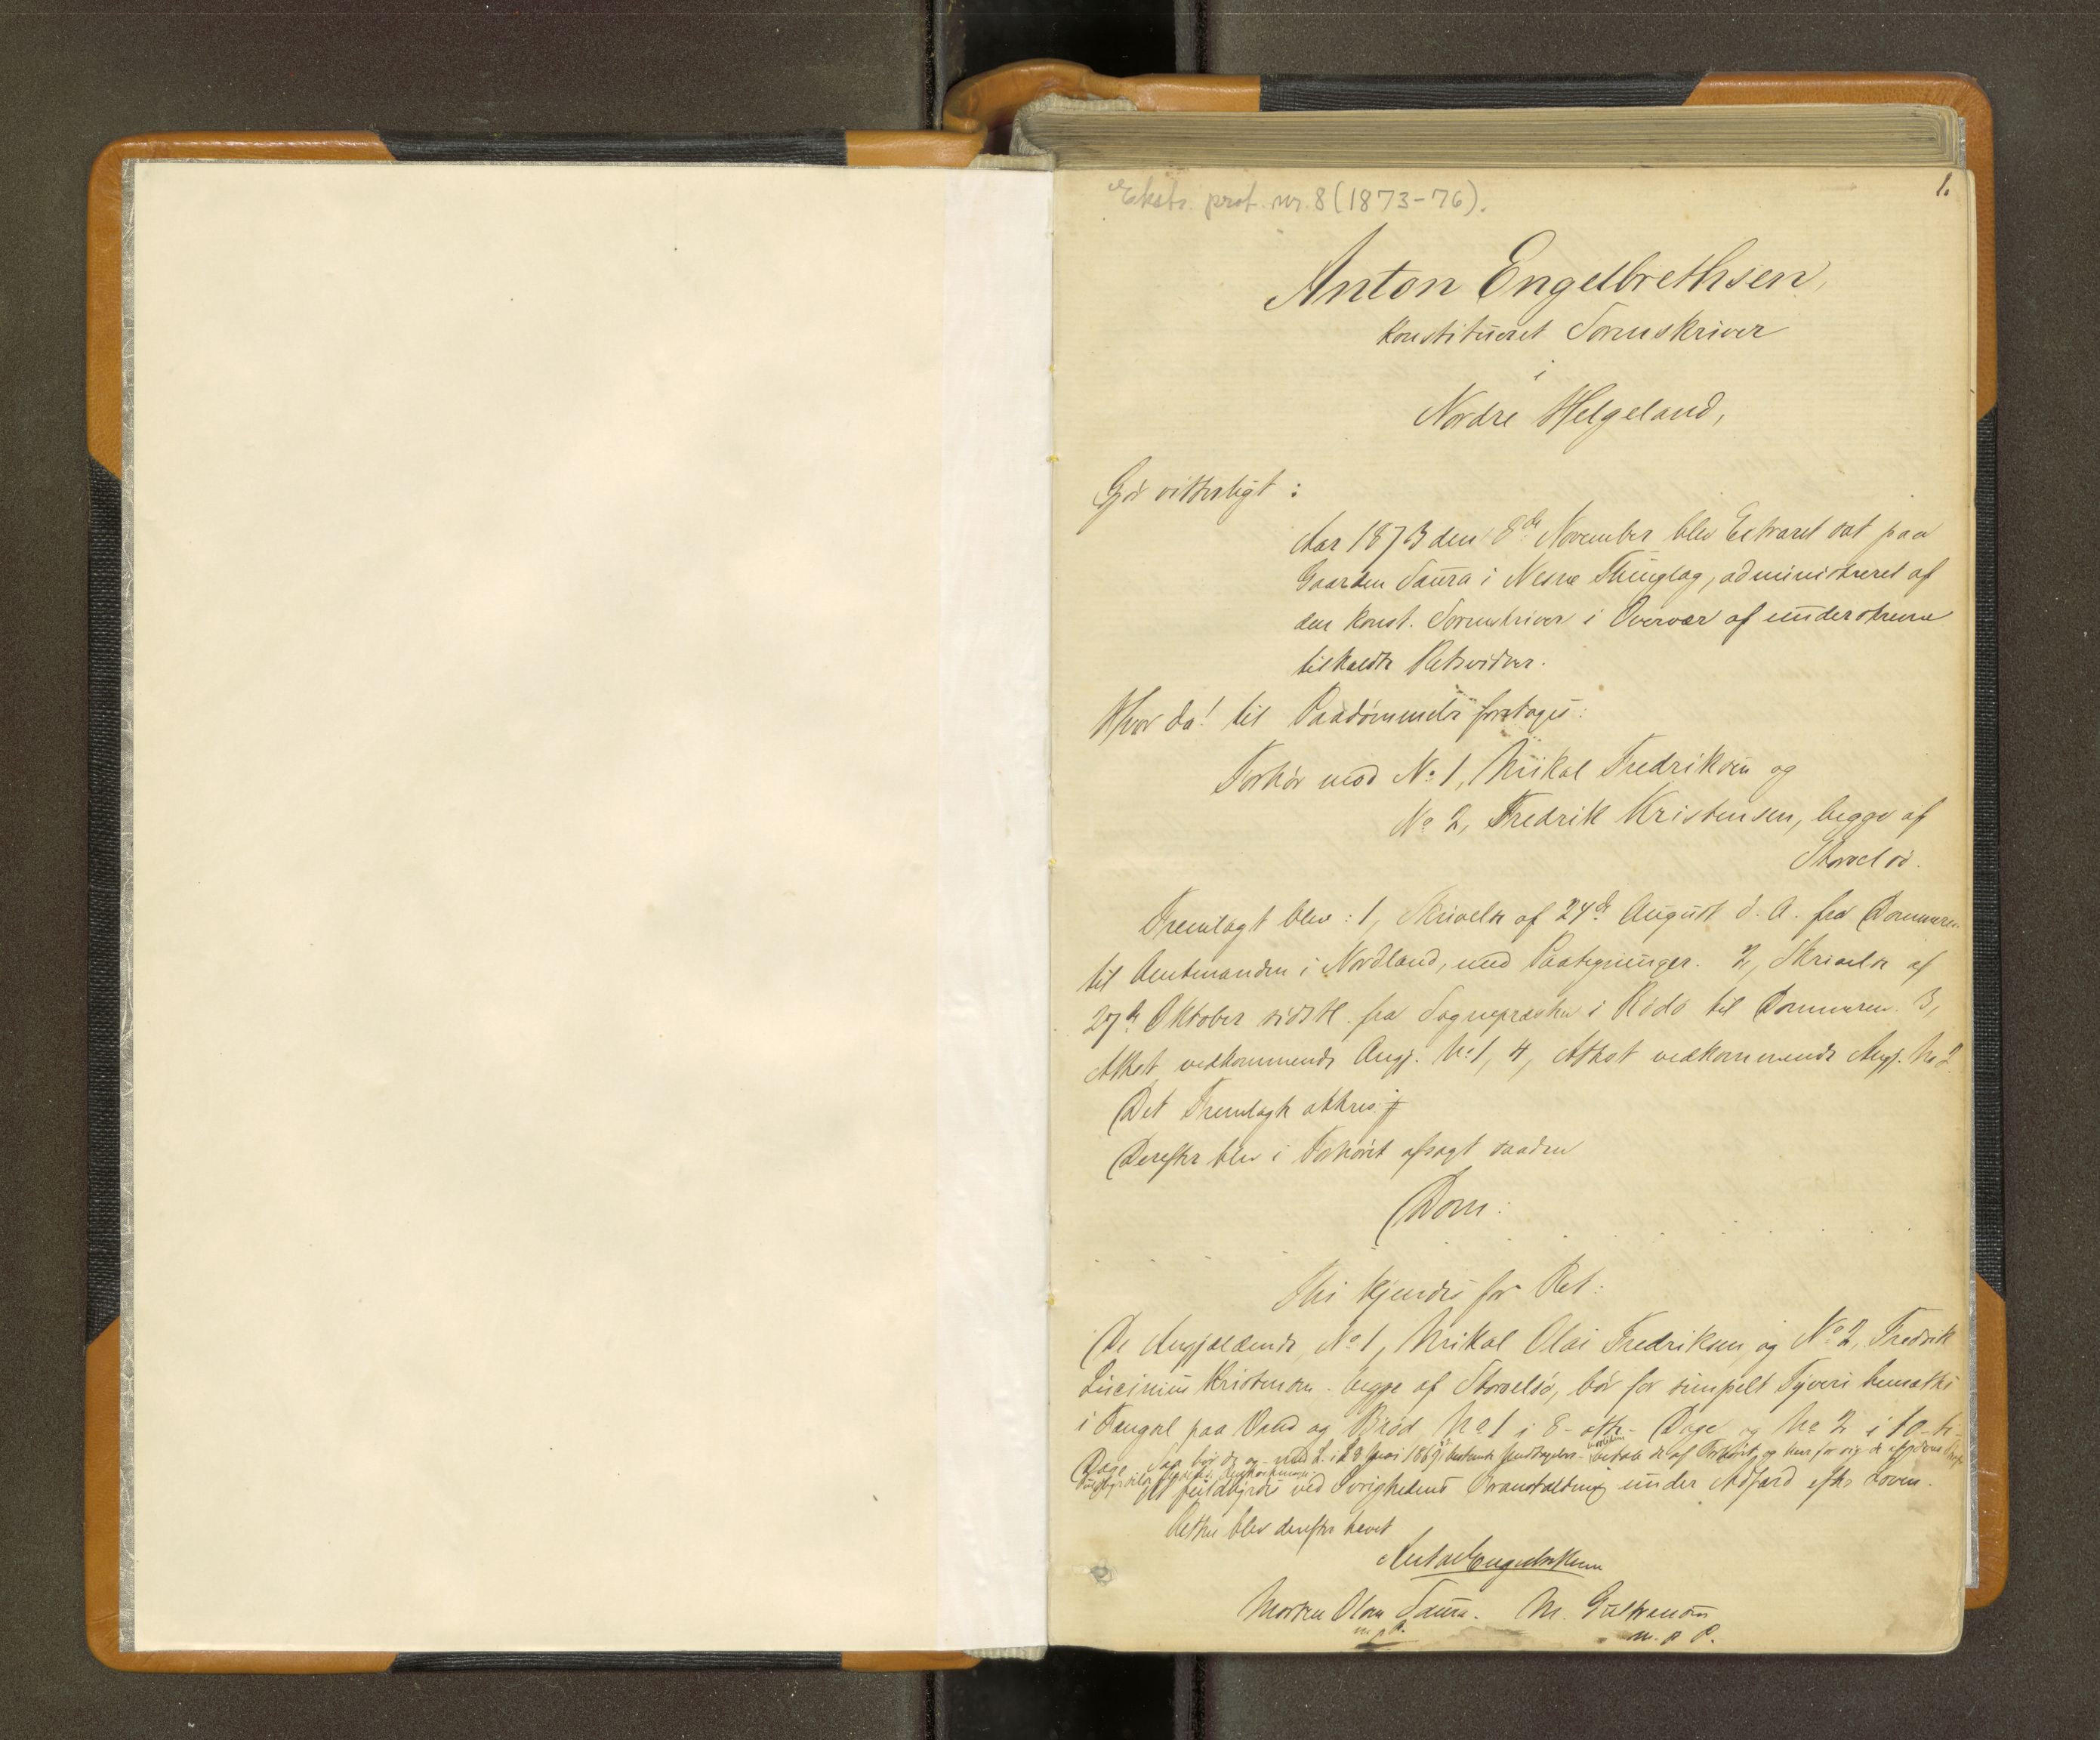 Ekstr. prot. nr. 8 (1873-76).
1.
Anton Engelbrethsen,
konstitueret Sorenskriver
i
Nordre Helgeland,
Gjør vitterligt :
Aar 1873 den 8de November blev Extraret sat paa
Gaarden Saura i Nesne Thinglag, administreret af
den konst. Sorenskriver i Overvær af underskrevne
tilkaldte Retsvidner.
Hvor da! til Paadømmelse foretoges:
Forhør mod No 1, Mikal Fredriksen og
No 2, Fredrik Kristensen, begge af
Storselsø.
Fremlagt blev : 1, Skrivelse af 24de August d. A. fra Dommeren
til Amtmanden i Nordland, med Paategninger. 2, Skrivelse af
27de Oktober sidstl. fra Sognepræsten i Rødø til Dommeren. 3,
Attest vedkommende Angj. No 1, 4, Attest vedkommende Angj. No 2
Det Fremlagte akteres
Derefter blev i Forhøret afsagt saadan
Dom:
Thi kjendes for Ret:
De Angjældende, No 1, Mikal Olai Fredriksen, og No 2, Fredrik
Lucinius Kristensen begge af Storselsø, bør for simpelt Tyveri hensættes
i Fængsel paa Vand og Brød No 1 i 8 - otte - Dage og No 2 i 10 - ti -
Dage. Saa bør de og - med L. i 28 Mai 1869 bestemte Undtagelse - betale de af Forhøret og hver for sig de af
At fuldbyrdes ved Øvrighedens Foranstaltning under Adfærd efter Loven.
Retten blev derefter hævet
Anton Engelbrethsen
Morten Olsen Saura. M. Gullesen
m. p. P.
m. p. P.